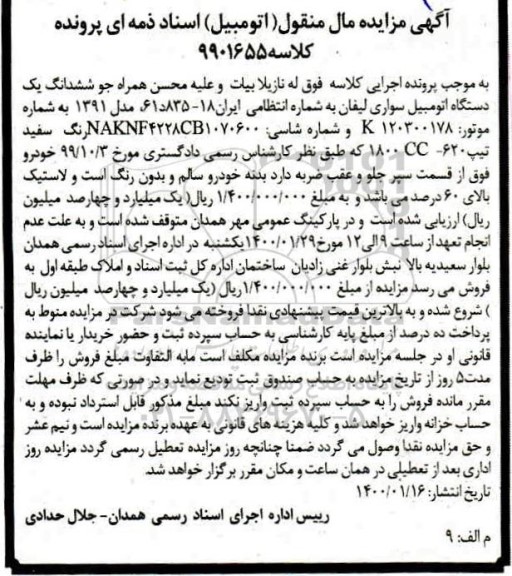 آگهی مزایده مال منقول( اتومبیل) اسناد ذمه ای پرونده
کلاسه۹۹۰۱۶۵۵
به موجب پرونده اجرایی کلاسه فوق له نازیلا بیات و علیه محسن همراه جو ششدانگ یک
دستگاه اتومبیل سواری لیفان به شماره انتظامی ایران۱۸-۸۳۵د۶۱، مدل ۱۳۹۱ به شماره
موتور: K ۱۲۰۳۰۰۱۷۸ و شماره شاسی: NAKNF۴۲۲۸CB۱۰۷۰۶۰۰رنگ سفید
تیپ۶۲۰- ۱۸۰۰ CC که طبق نظر کارشناس رسمی دادگستری مورخ ۹۹/۱۰/۳ خودرو
فوق از قسمت سپر جلو و عقب ضربه دارد بدنه خودرو سالم و بدون رنگ است و لاستیک
بالای ۶۰ درصد می باشد و به مبلغ ۱/۴۰۰/۰۰۰/۰۰۰ ریال( یک میلیارد و چهارصد میلیون
ریال) ارزیابی شده است و در پارکینگ عمومی مهر همدان متوقف شده است و به علت عدم
انجام تعهد از ساعت ۹ الی۱۲ مورخ۱۴۰۰/۰۱/۲۹یکشنبه در اداره اجرای اسناد رسمی همدان
بلوار سعیدیه بالا نبش بلوار غنی زادیان ساختمان اداره کل ثبت اسناد و املاک طبقه اول به
فروش می رسد مزایده از مبلغ ۱/۴۰۰/۰۰۰/۰۰۰ریال (یک میلیارد و چهارصد میلیون ریال
) شروع شده و به بالاترین قیمت پیشنهادی نقدا فروخته می شود شرکت در مزایده منوط به
پرداخت ده درصد از مبلغ پایه کارشناسی به حساب سپرده ثبت و حضور خریدار یا نماینده
قانونی او در جلسه مزایده است برنده مزایده مکلف است مابه التفاوت مبلغ فروش را ظرف
مدت۵ روز از تاریخ مزایده به حساب صندوق ثبت تودیع نماید و در صورتی که ظرف مهلت
مقرر مانده فروش را به حساب سپرده ثبت واریز نکند مبلغ مذکور قابل استرداد نبوده و به
حساب خزانه واریز خواهد شد و کلیه هزینه های قانونی به عهده برنده مزایده است و نیم عشر
و حق مزایده نقدا وصول می گردد ضمنا چنانچه روز مزایده تعطیل رسمی گردد مزایده روز
اداری بعد از تعطیلی در همان ساعت و مکان مقرر برگزار خواهد شد.
تاریخ انتشار: ۱۴۰۰/۰۱/۱۶
رییس اداره اجرای اسناد رسمی همدان- جلال حدادی
م الف: ۹